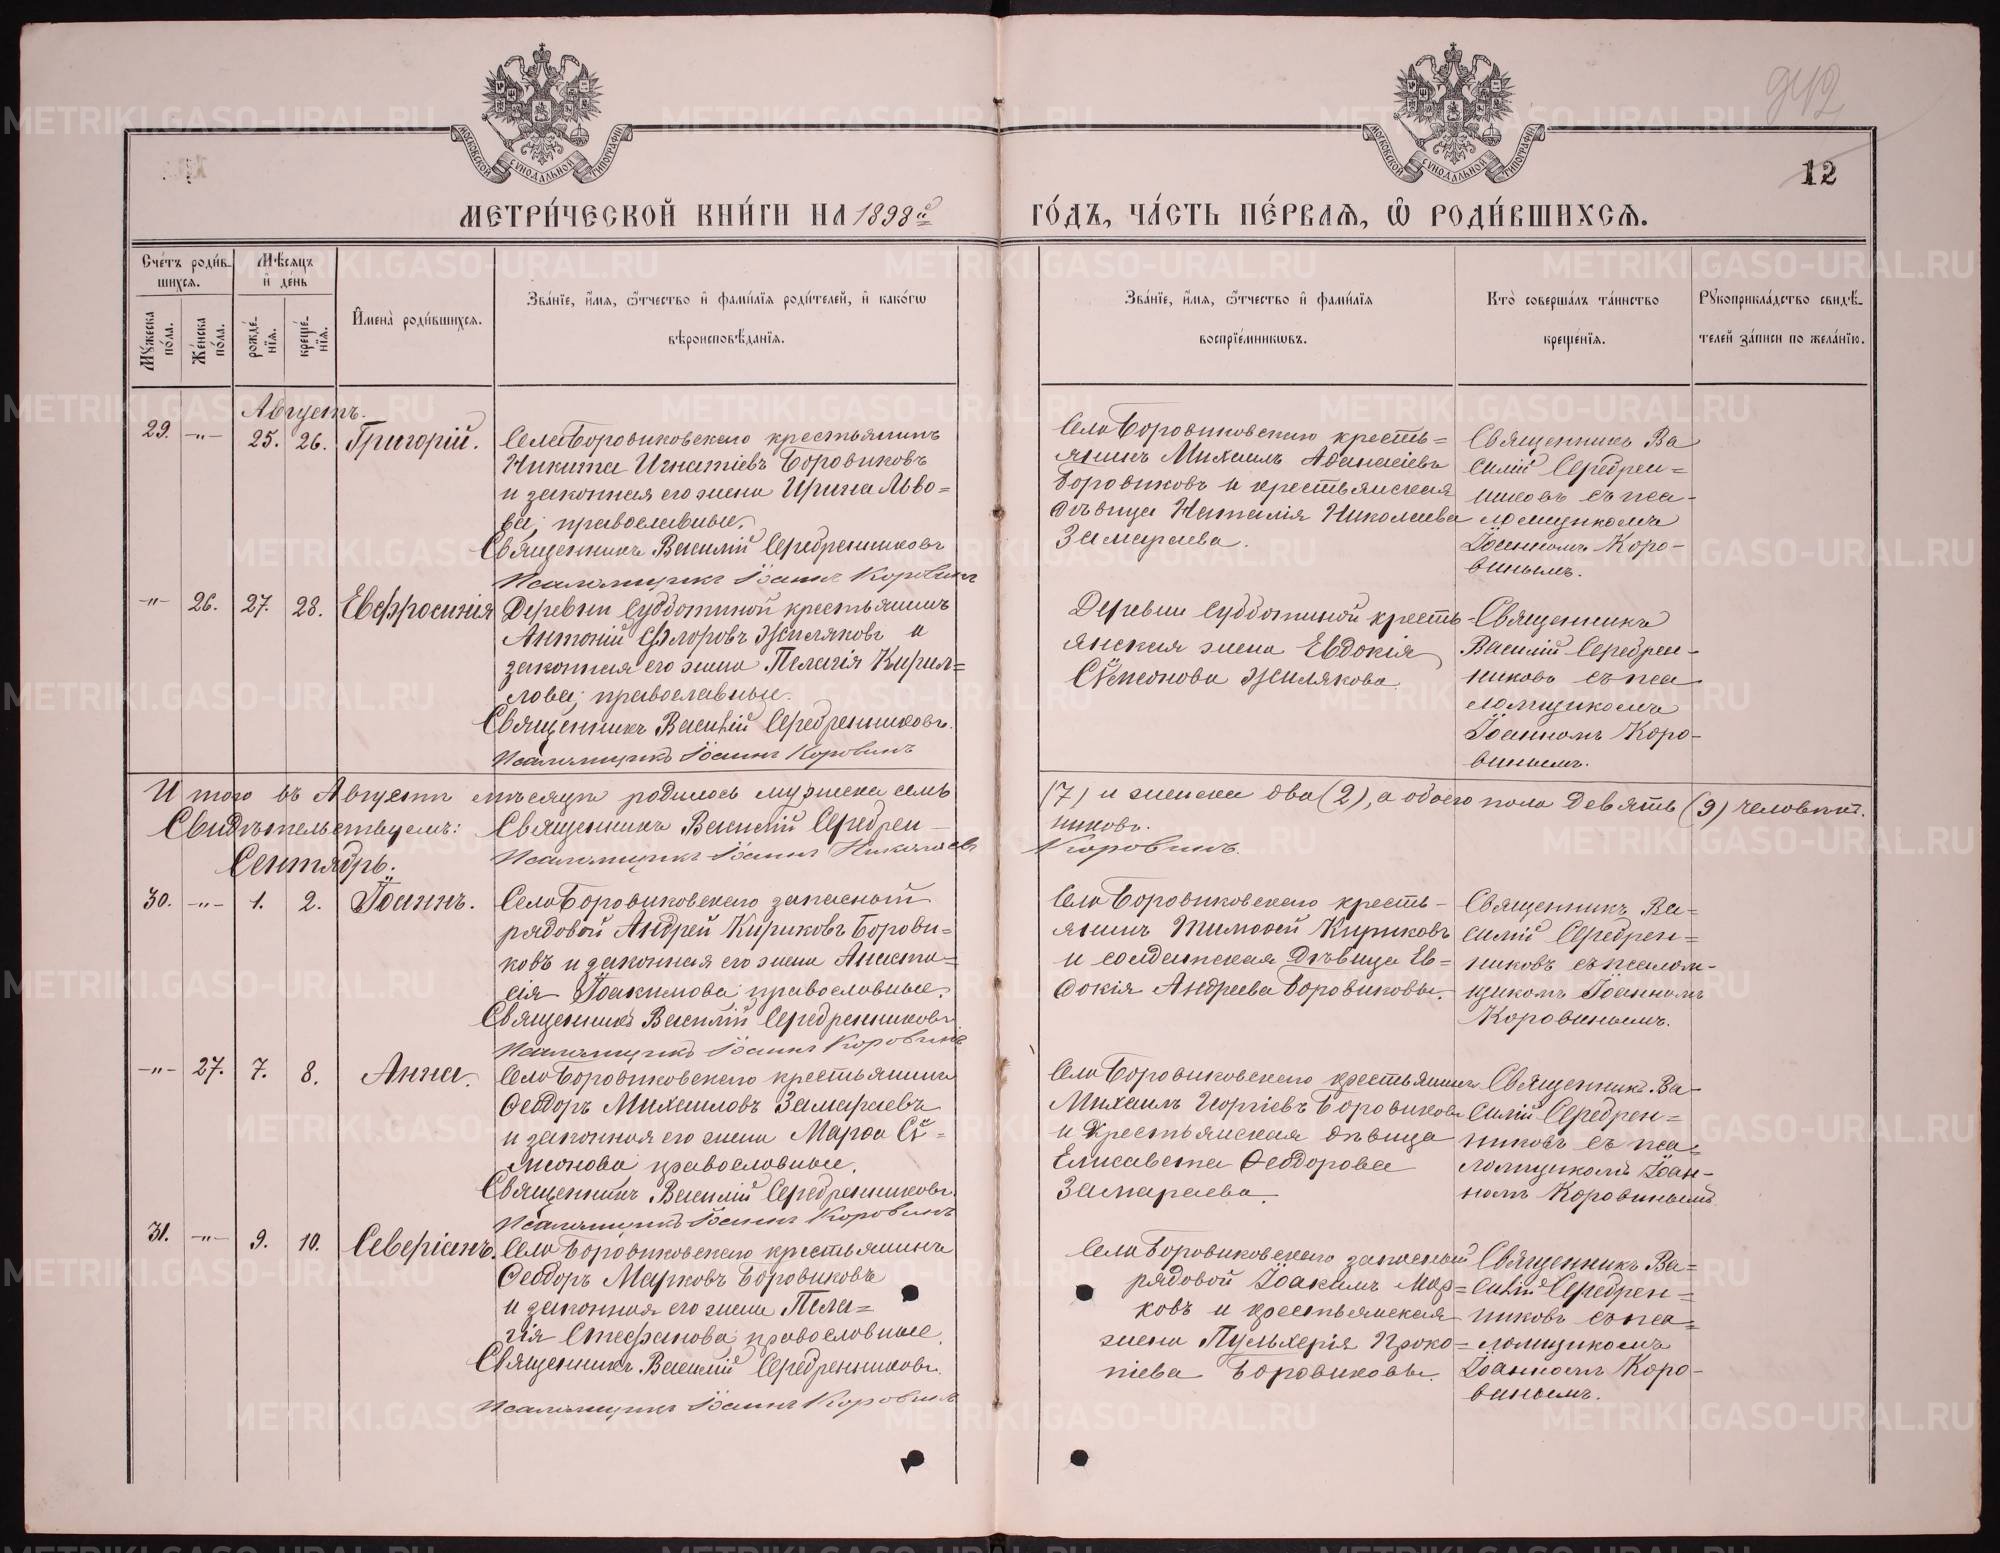 942
12
МОСКОВСКОЙ СѴНОДАЛЬНОЙ ТИПОГРАФІИ
МОСКОВСКОЙ СѴНОДАЛЬНОЙ ТИПОГРАФІИ
МЕТРИ́ЧЕСКОЙ КНИ́ГИ НА 1898й ГО́ДЪ, ЧА́СТЬ ПЕ́РВАЯ, Ѽ РОДИ́ВШИХСѦ.
Счетъ роди́в-
шихсѧ.
Мѣ́сѧцъ
и҆ де́нь
Мꙋжеска по́ла.
Же́нска по́ла.
рожде́-
нїѧ.
креще́-
нїѧ.
И҆мена̀ роди́вшихсѧ.
Зва́нїе, и҆́мѧ, ѻ҆́тчество и҆ фами́лїѧ роди́телей, и҆ како́гѡ
вѣроисповѣ́данїѧ.
Зва́нїе, и҆́мѧ, ѻ҆́тчество и҆ фами́лїѧ
воспрїе́мникѡвъ.
Кто̀ соверша́лъ та́инство
креще́нїѧ.
Рꙋкоприкла́дство свидѣ́-
телей за́писи по жела́нїю.
Августъ.
29. -"- 25. 26. Григорій.
Села Боровиковскаго крестьянинъ
Никита Игнатіевъ Боровиковъ
и законная его жена Ирина Льво=
ва; православные.
Священникъ Василій Серебренниковъ
Псаломщикъ Іоаннъ Коровинъ
Села Боровиковскаго кресть=
янинъ Михаилъ Аѳанасіевъ
Боровиковъ и крестьянская
дѣвица Наталія Николаева
Замараева.
Священникъ Ва
силій Серебрен=
никовъ съ пса-
ломщикомъ
Іоанномъ Коро-
винымъ.
-"- 26. 27. 28. Евфросинія
Деревни Субботиной крестьянинъ
Антоній Флоровъ Жиляковъ и
законная его жена Пелагія Кирил=
лова; православные.
Священникъ Василій Серебренниковъ.
Псаломщикъ Іоаннъ Коровинъ
Деревни Субботиной кресть-
янская жена Евдокія
Сѵмеонова Жилякова.
Священникъ
Василій Серебрен-
никовъ съ пса
ломщикомъ
Іоанномъ Коро-
винымъ.
Итого въ Августѣ мѣсяцѣ родилось мужеска семь (7) и женска два (2), а обоего пола девять (9) человѣкъ.
Свидѣтельствуемъ: Священникъ Василій Серебрен-
никовъ.
Псаломщикъ Іоаннъ Николаевъ Коровинъ.
Сентябрь.
30. -"- 1. 2. Іоаннъ.
Села Боровиковскаго запасный
рядовой Андрей Кириковъ Борови=
ковъ и законная его жена Анаста=
сія Іоакимова; православные.
Священникъ Василій Серебренниковъ
Псаломщикъ Іоаннъ Коровинъ
Села Боровиковскаго кресть-
янинъ Тимоѳей Кириковъ
и солдатская дѣвица Ев=
докія Андреева Боровиковы.
Священникъ Ва=
силій Серебрен=
никовъ съ псалом-
щикомъ Іоанномъ
Коровинымъ.
-"- 27. 7. 8. Анна.
Села Боровиковскаго крестьянинъ
Ѳеодоръ Михаиловъ Замараевъ
и законная его жена Марѳа Сѵ=
меонова православные.
Священникъ Василій Серебренниковъ.
Псаломщикъ Іоаннъ Коровинъ
Села Боровиковскаго крестьянинъ
Михаилъ Георгіевъ Боровиковъ
и крестьянская дѣвица
Елисавета Ѳеодорова
Замараева.
Священникъ Ва-
силій Серебрен=
никовъ съ пса=
ломщикомъ Іоан-
номъ Коровинымъ
31. -"- 9. 10. Северіанъ.
Села Боровиковскаго крестьянинъ
Ѳеодоръ Марковъ Боровиковъ
и законная его жена Пела=
гія Стефанова, православные.
Священникъ Василій Серебренниковъ.
Псаломщикъ Іоаннъ Коровинъ
Села Боровиковскаго запасный
рядовой Іоакимъ Мар=
ковъ и крестьянская
жена Пульхерія Проко=
піева Боровиковы.
Священникъ Ва=
силій Серебрен=
никовъ съ пса=
ломщикомъ
Іоанномъ Коро-
винымъ.
METRIKI.GASO-URAL.RU